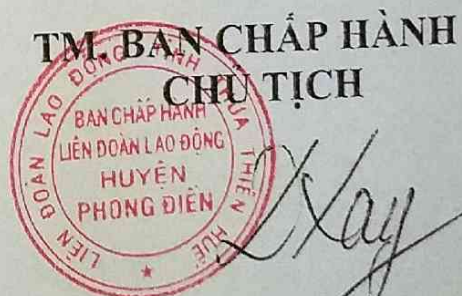 TM. BAN CHẤP HÀNH
CHỦ TỊCH
LIÊN ĐOÀN LAO ĐỘNG TỈNH THỪA THIÊN HUẾ
BAN CHẤP HÀNH
LIÊN ĐOÀN LAO ĐỘNG
HUYỆN
PHONG ĐIỀN